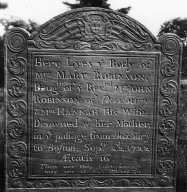 Here Lyes yͤ Body of
Mʳˢ MARY ROBINSON,
Daugʳ of yͤ Revᵈ Mʳ JOHN
ROBINSON of DUXBURY
& Mʳˢ HANNAH His Wife,
Drowned wᵗʰ her Mother,
in yͤ passage from Duxbury
to Boston, Sepᵗ 22ᵈ 1722
Ætatis 16